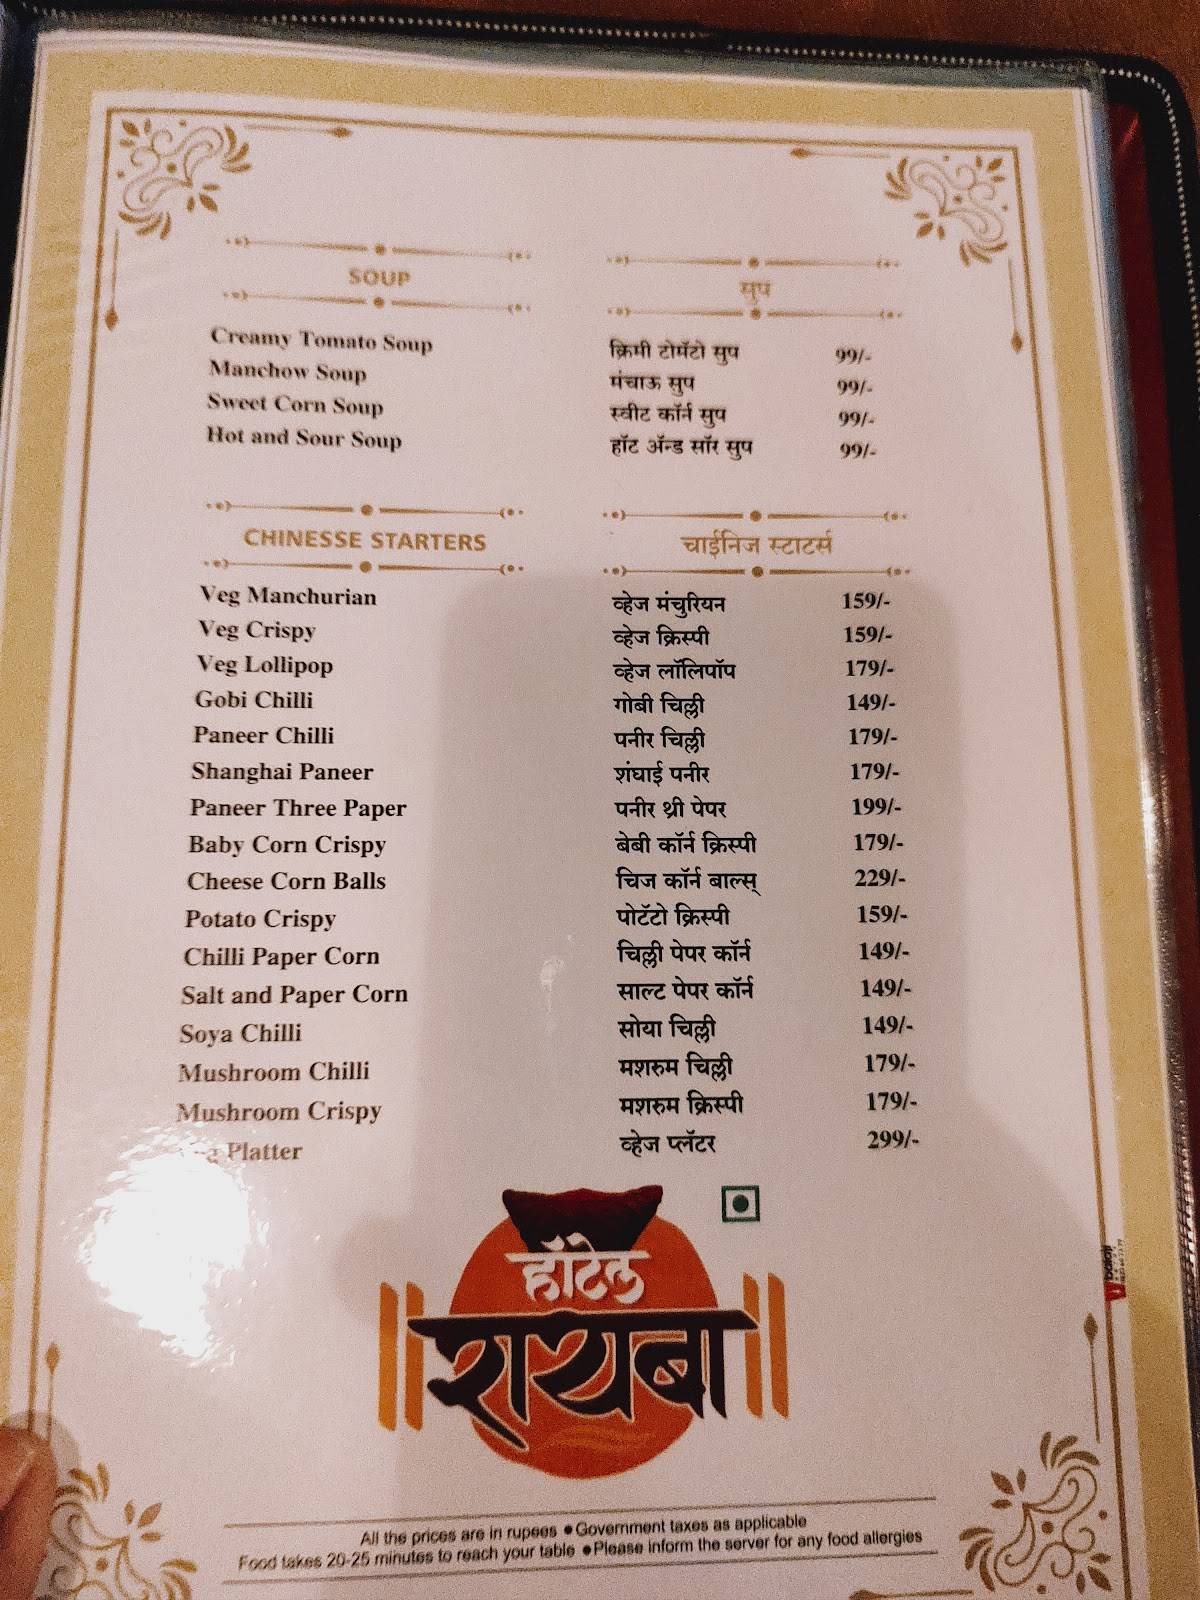 SOUP सुप
Creamy Tomato Soup क्रिमी टोमॅटो सुप 99/-
Manchow Soup मंचाऊ सुप 99/-
Sweet Corn Soup स्वीट कॉर्न सुप 99/-
Hot and Sour Soup हॉट ॲन्ड सॉर सुप 99/-
CHINESSE STARTERS चाईनिज स्टाटर्स
Veg Manchurian व्हेज मंचुरियन 159/-
Veg Crispy व्हेज क्रिस्पी 159/-
Veg Lollipop व्हेज लॉलिपॉप 179/-
Gobi Chilli गोबी चिल्ली 149/-
Paneer Chilli पनीर चिल्ली 179/-
Shanghai Paneer शंघाई पनीर 179/-
Paneer Three Paper पनीर थ्री पेपर 199/-
Baby Corn Crispy बेबी कॉर्न क्रिस्पी 179/-
Cheese Corn Balls चिज कॉर्न बाल्स् 229/-
Potato Crispy पोटॅटो क्रिस्पी 159/-
Chilli Paper Corn चिल्ली पेपर कॉर्न 149/-
Salt and Paper Corn साल्ट पेपर कॉर्न 149/-
Soya Chilli सोया चिल्ली 149/-
Mushroom Chilli मशरुम चिल्ली 179/-
Mushroom Crispy मशरुम क्रिस्पी 179/-
Platter व्हेज प्लॅटर 299/-
हॉटेल
॥ रायबा ॥
All the prices are in rupees ● Government taxes as applicable
Food takes 20-25 minutes to reach your table ● Please inform the server for any food allergies